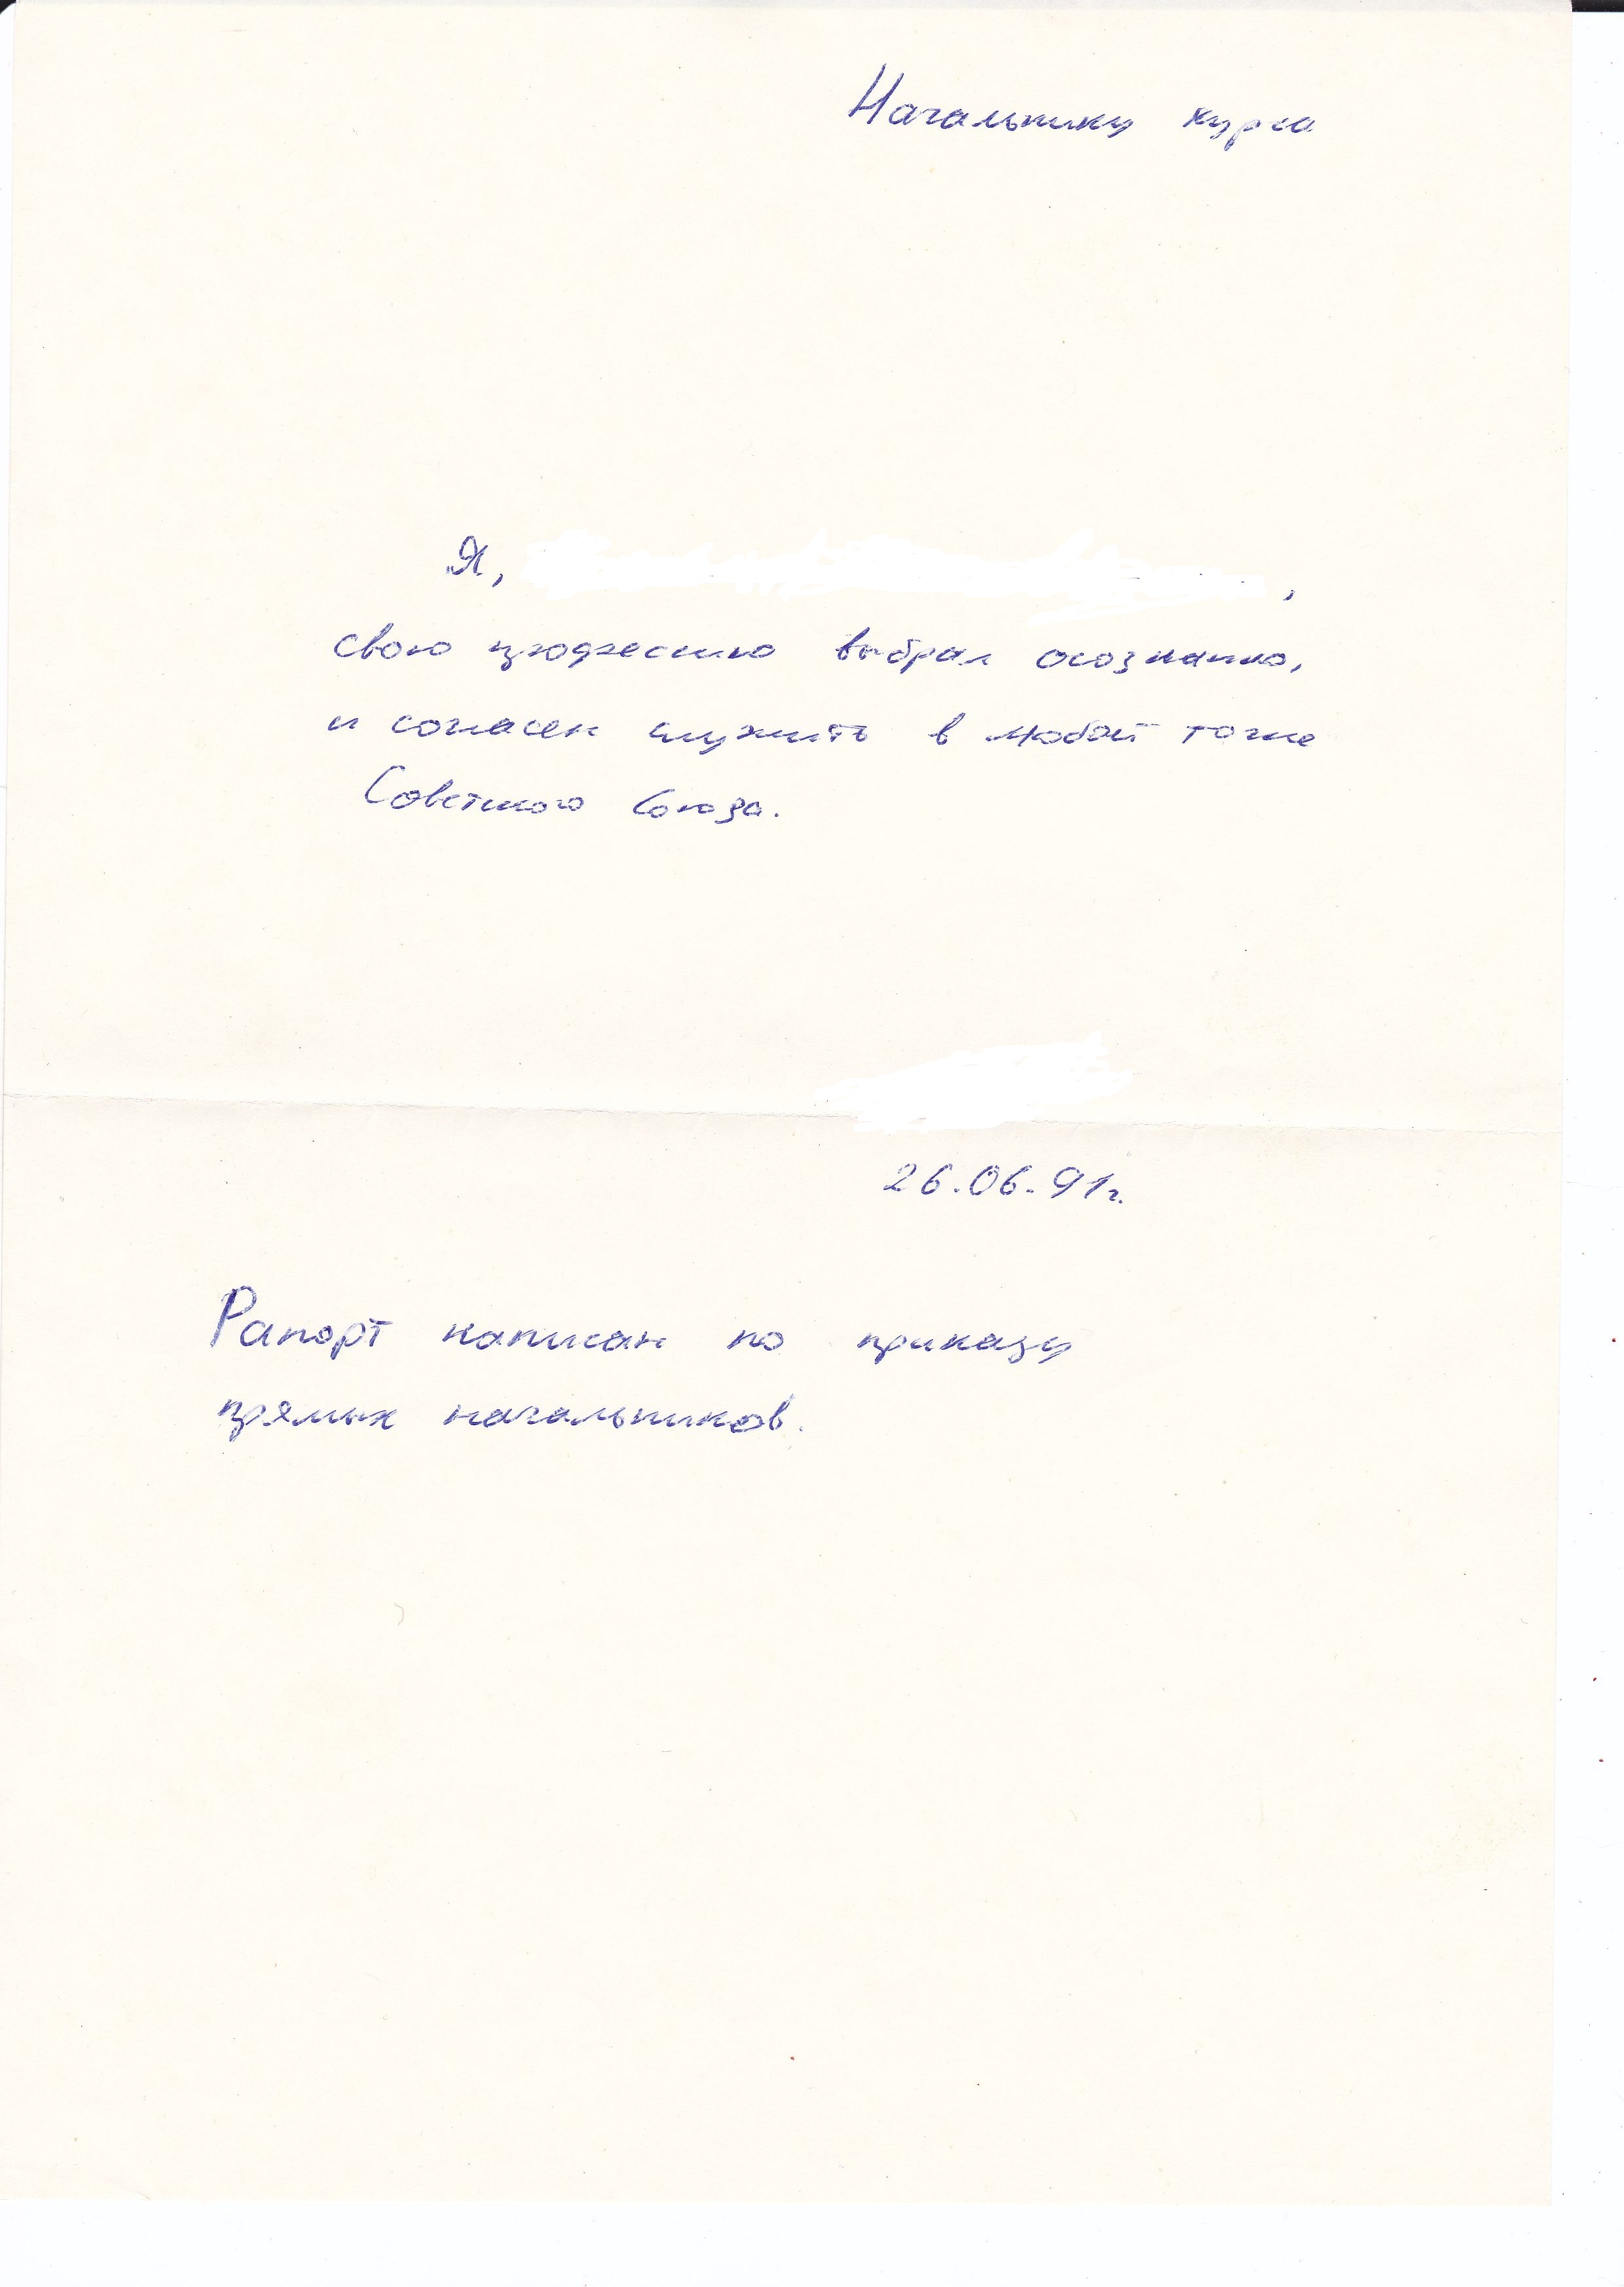 Начальнику курса
Я, ,
свою профессию выбрал осознанно,
и согласен служить в любой точке
Советского Союза.
26.06.91г.
Рапорт написан по приказу
прямых начальников.